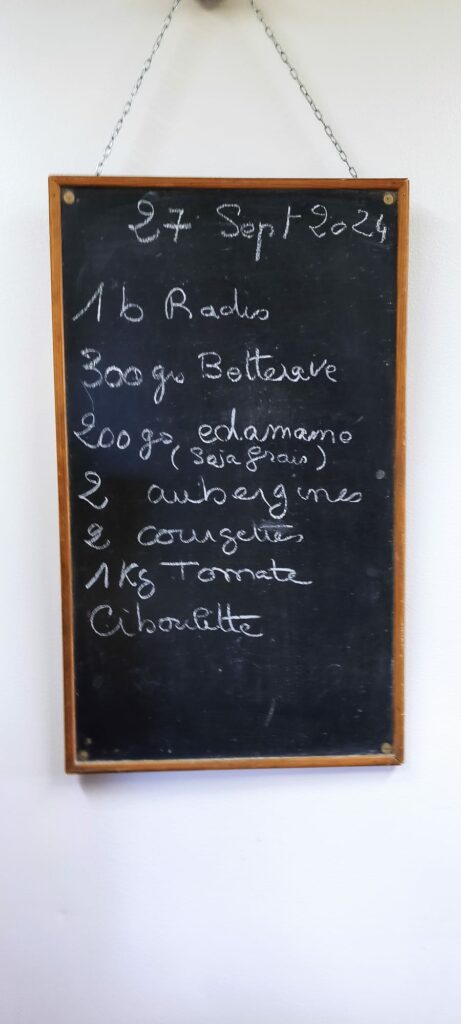 27 Sept 2024
1 b Radis
300 gr Betterave
200 gr edamame
(Soja frais)
2 aubergines
2 courgettes
1 Kg Tomate
Ciboulette